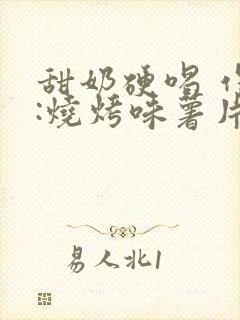 甜奶硬唱
:燒烤味薯片
易人北1